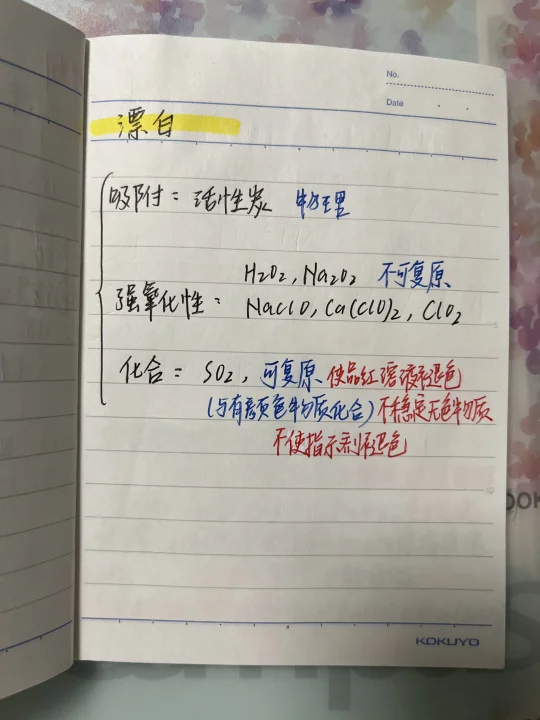 No.
Date
漂白
吸附：活性炭 物理
H2O2, Na2O2 不可复原
强氧化性： NaClO, Ca(ClO)2, ClO2
化合： SO2, 可复原 使品红溶液褪色
(与有颜色物质化合) 不稳定无色物质
不使指示剂褪色
KOKUYO